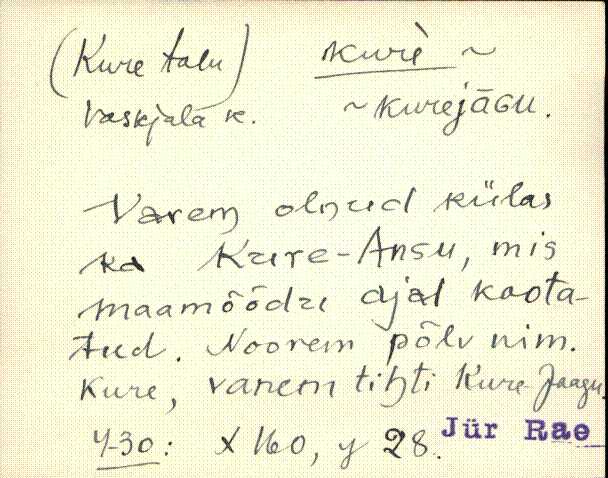 (Kure talu) kurè ~
Vaskjala k. ~ kurejāGu.
Varem olnud külas
ka Kure-Ansu, mis
maamõõdu ajal kaota-
tud. Noorem põlv nim.
Kure, vanem tihti Kure Jaagu.
Y-30: X 160, y 28. Jür Rae